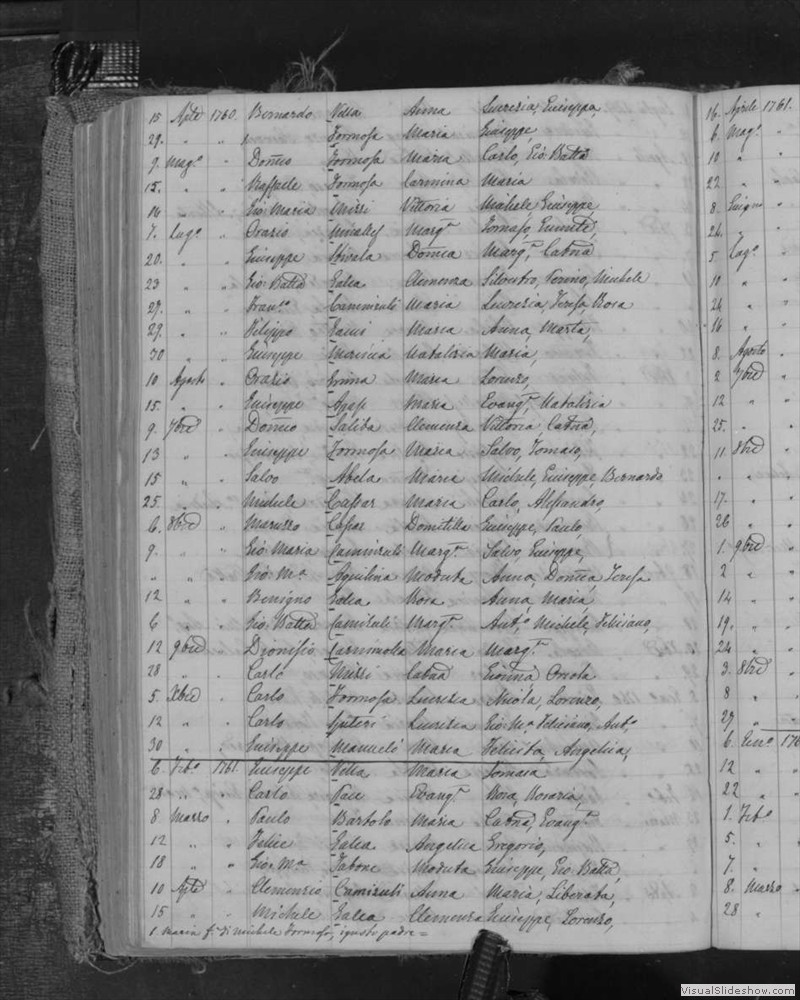 15 Aple 1760. Bernardo Villa Anna Lucrezia, Giuseppa,
29. " " Formosa Maria Giuseppe,
9. Mago " Domco Formosa Maria Carlo, Gio Batta
15. " " Raffaele Formosa Carmina Maria
16 " " Gio Maria Mizzi Vittoria Michele, Giuseppe,
7. Lugo " Orazio Margta Tomaso,
20. " " Giuseppe Domca Margta, Catna
23 " " Gio: Batta Galea Clemenza Silvestro, Michele
27. " " Franco Cammisuli Maria Lucrezia, Teresa, Rosa
29. " " Filippo Maria Anna, Marta,
30 " " Giuseppe Natalizia Maria,
10 Agosto " Orazio Maria Lorenzo,
15. " " Giuseppe Agap Maria Evangta, Natalizia
9. 7bre " Domco Saliba Clemenza Vittoria, Catna,
13 " " Giuseppe Formosa Maria Salvo, Tomaso,
15 " " Salvo Abela Maria Michele, Giuseppe, Bernardo
25. " " Michele Caspar Maria Carlo, Alessandro,
6. 8bre " Maruzzo Caspar Domitilla Giuseppe, Paulo,
9. " " Gio: Maria Camisuli Margta Salvo, Giuseppe,
" " " Gio: Ma Aquilina Modesta Anna, Domca, Teresa
12 " " Benigno Galea Rosa Anna, Maria,
6 " " Gio: Batta Camisuli Margta Anto, Michele, Feliciano,
12 9bre " Dionisio Caramolla Maria Margta
28 " " Carlo Mizzi Catna Gionna Orsola
5. Xbre " Carlo Formosa Lucrezia Nicola, Lorenzo,
12 " " Carlo Spiteri Lucrezia Gio: Ma Feliciano, Anto,
30 " " Giuseppe Manuele Maria Felicita, Angelica,
6 Febo 1761. Giuseppe Vella Maria Tomasa
28 " " Carlo Pace Evangta Rosa, Rosaria,
8 Marzo " Paulo Bartolo Maria Catna, Evangta
12 " " Felice Galea Angelica Gregorio,
18 " " Gio: Ma Tabone Modesta Giuseppe, Gio Batta,
10 Aple " Clemenzio Camisuli Anna Maria, Liberata,
15 " " Michele Galea Clemenza Giuseppe, Lorenzo,
1. Maria fa di Michele Formosa, igusto padre =
16. Aprile 1761.
6. Mago "
10 "
22 "
8. Giugno "
26. "
5 Lugo "
10 "
24 "
16 "
8. Agosto "
2 7bre "
12 "
25. "
11. 8bre "
" "
17. "
26 "
1. 9bre "
2 "
14 "
19. "
24 "
3. Xbre "
8 "
27 "
6. Geno 176
12 "
22 "
1. Febo
5. "
7. "
8. Marzo "
28 "
VisualSlideshow.com